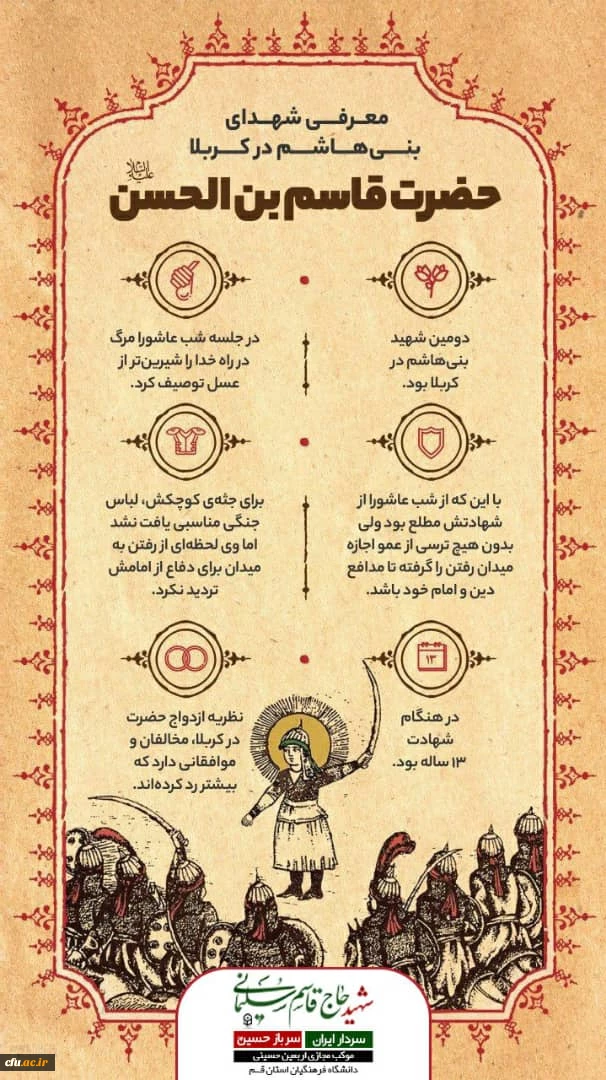 معرفی شهدای
بنی‌هاشم در کربلا
علیه‌السلام
حضرت قاسم بن الحسن
دومین شهید
بنی‌هاشم در
کربلا بود.
در جلسه شب عاشورا مرگ
در راه خدا را شیرین‌تر از
عسل توصیف کرد.
با این که از شب عاشورا از
شهادتش مطلع بود ولی
بدون هیچ ترسی از عمو اجازه
میدان رفتن را گرفته تا مدافع
دین و امام خود باشد.
برای جثه‌ی کوچکش، لباس
جنگی مناسبی یافت نشد
اما وی لحظه‌ای از رفتن به
میدان برای دفاع از امامش
تردید نکرد.
۱۳
در هنگام
شهادت
۱۳ ساله بود.
نظریه ازدواج حضرت
در کربلا، مخالفان و
موافقانی دارد که
بیشتر رد کرده‌اند.
شهید حاج قاسم سلیمانی
سردار ایران سرباز حسین
موکب مجازی اربعین حسینی
دانشگاه فرهنگیان استان قم
cfu.ac.ir